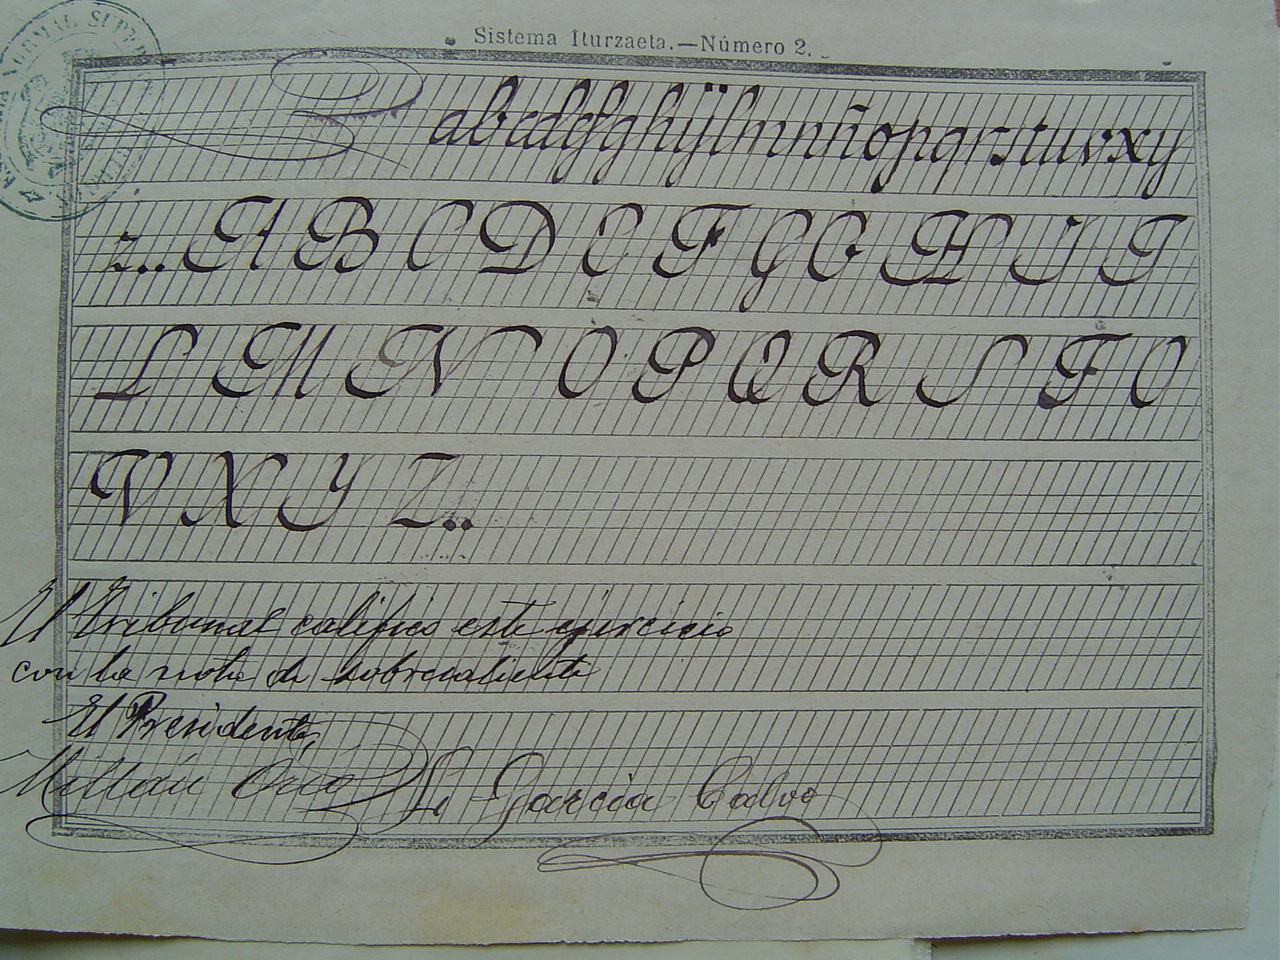 Sistema Iturzaeta.—Número 2.
abcdefghijlmnñopqrstuvxy
z..A B C D E F G G H I J
L M N O P Q R S T U
V X Y Z..
El Tribunal calificó este ejercicio
con la nota de sobresaliente
El Presidente,
Millán Orío L. García Calvo
NORMAL SUPE